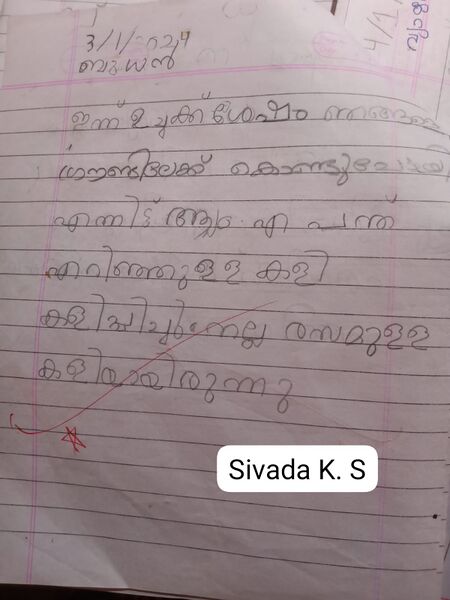 3/1/2024
ബുധൻ
ഇന്ന് ഉച്ചക്ക് ശേഷം ഞങ്ങളെ
ഗ്രൗണ്ടിലേക്ക് കൊണ്ടുപോയി
എന്നിട്ട് ആദ്യം എ പന്ത്
എറിഞ്ഞുള്ള കളി
കളിപ്പിച്ചു നല്ല രസമുള്ള
കളിയായിരുന്നു
Sivada K. S
4/1/